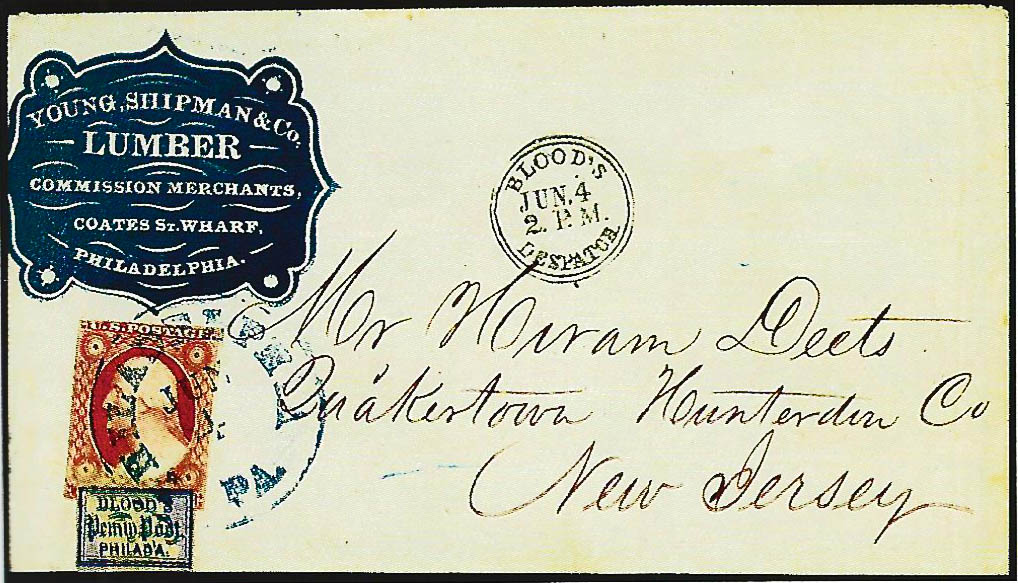 YOUNG, SHIPMAN & Co.
LUMBER
COMMISSION MERCHANTS,
COATES St. WHARF,
PHILADELPHIA.
BLOOD'S
JUN. 4
2. P.M.
DESPATCH
Mr Hiram Deets
Quakertown Hunterdon Co
New Jersey
U.S. POSTAGE
JUN
PA.
BLOOD'S
Penny Post
PHILAD'A.